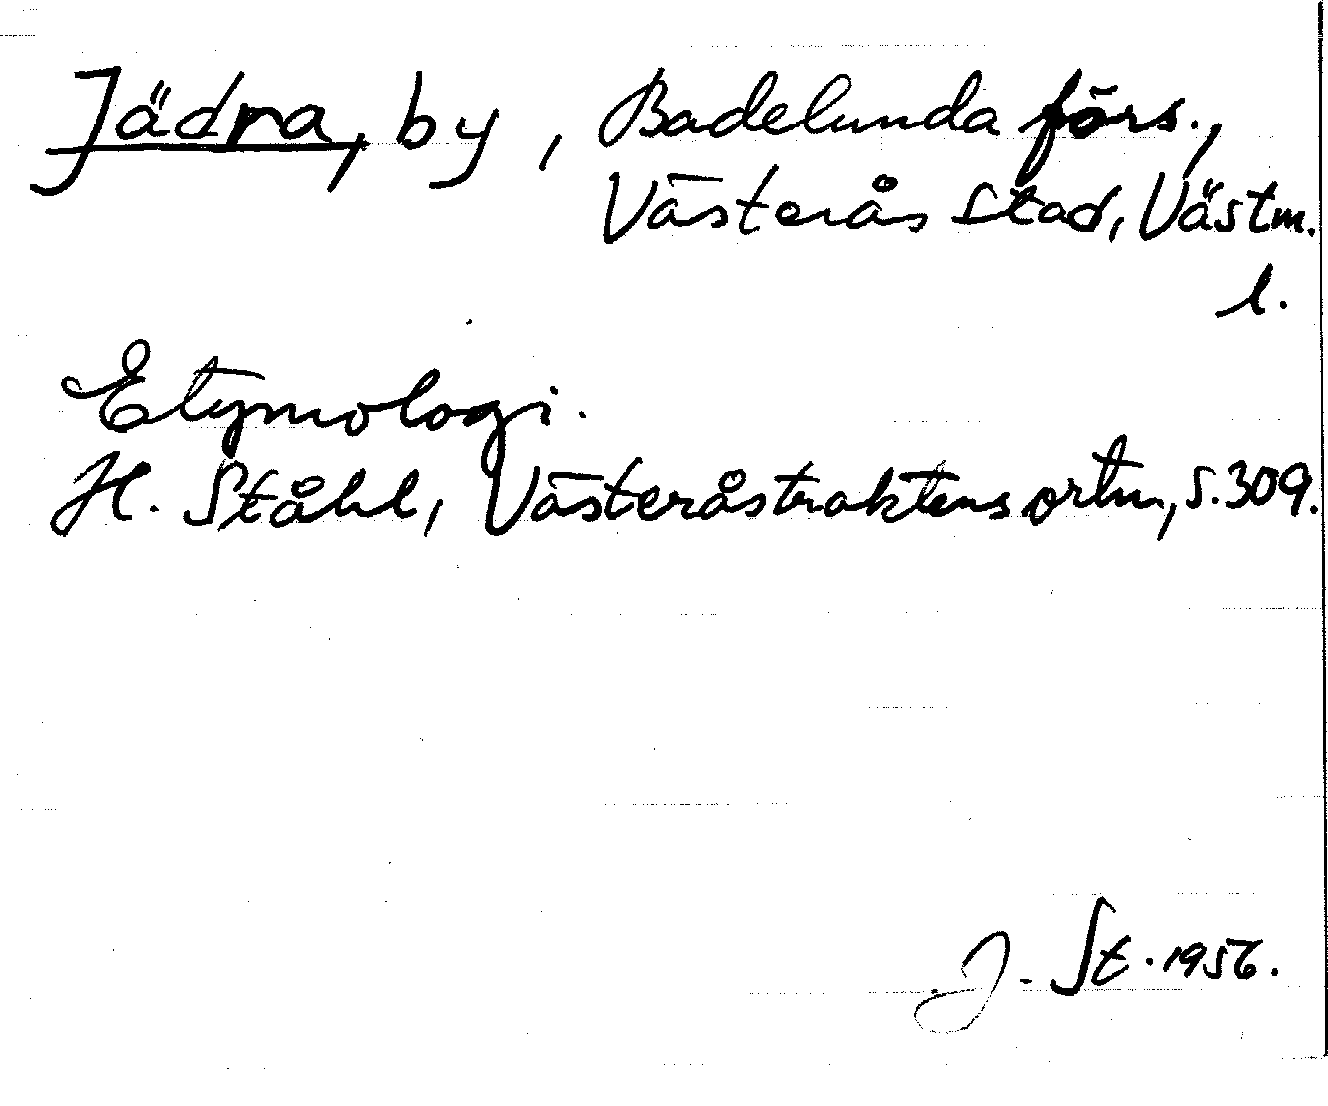 Jädra, by, Badelunda förs.,
Västerås stad, Västm.
l.
Etymologi.
H. Ståhl, Västeråstraktens ortn, s. 309.
J. St. 1956.